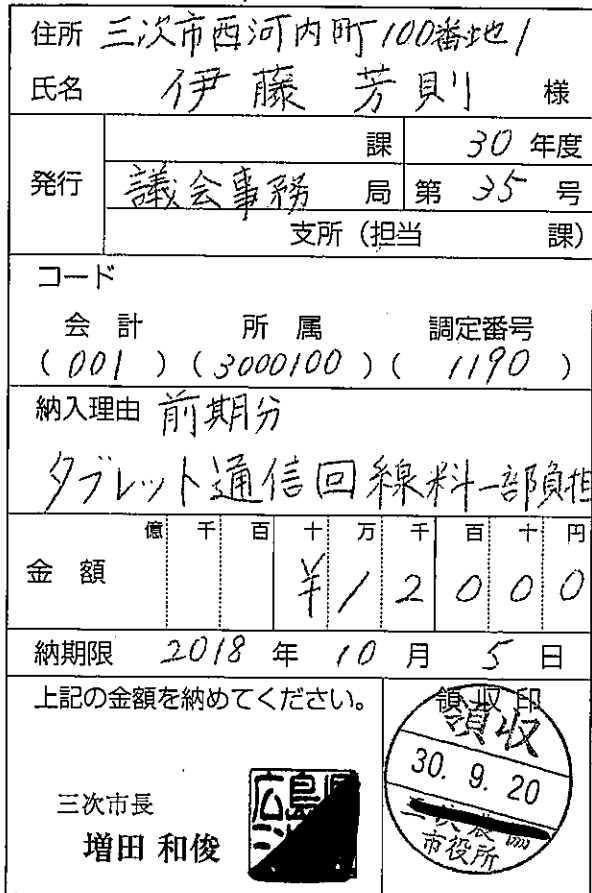 住所 三次市西河内町100番地1
氏名 伊藤 芳則 様
発行
課 30年度
議会事務局 第35号
支所(担当 課)
コード
会計 所属 調定番号
(001)(3000100)(1190)
納入理由 前期分
タブレット通信回線料一部負担
億 千 百 十 万 千 百 十 円
金額 ¥12000
納期限 2018年10月5日
上記の金額を納めてください。
領収印
領収
30.9.20
市役所
三次市長
増田 和俊
広島県